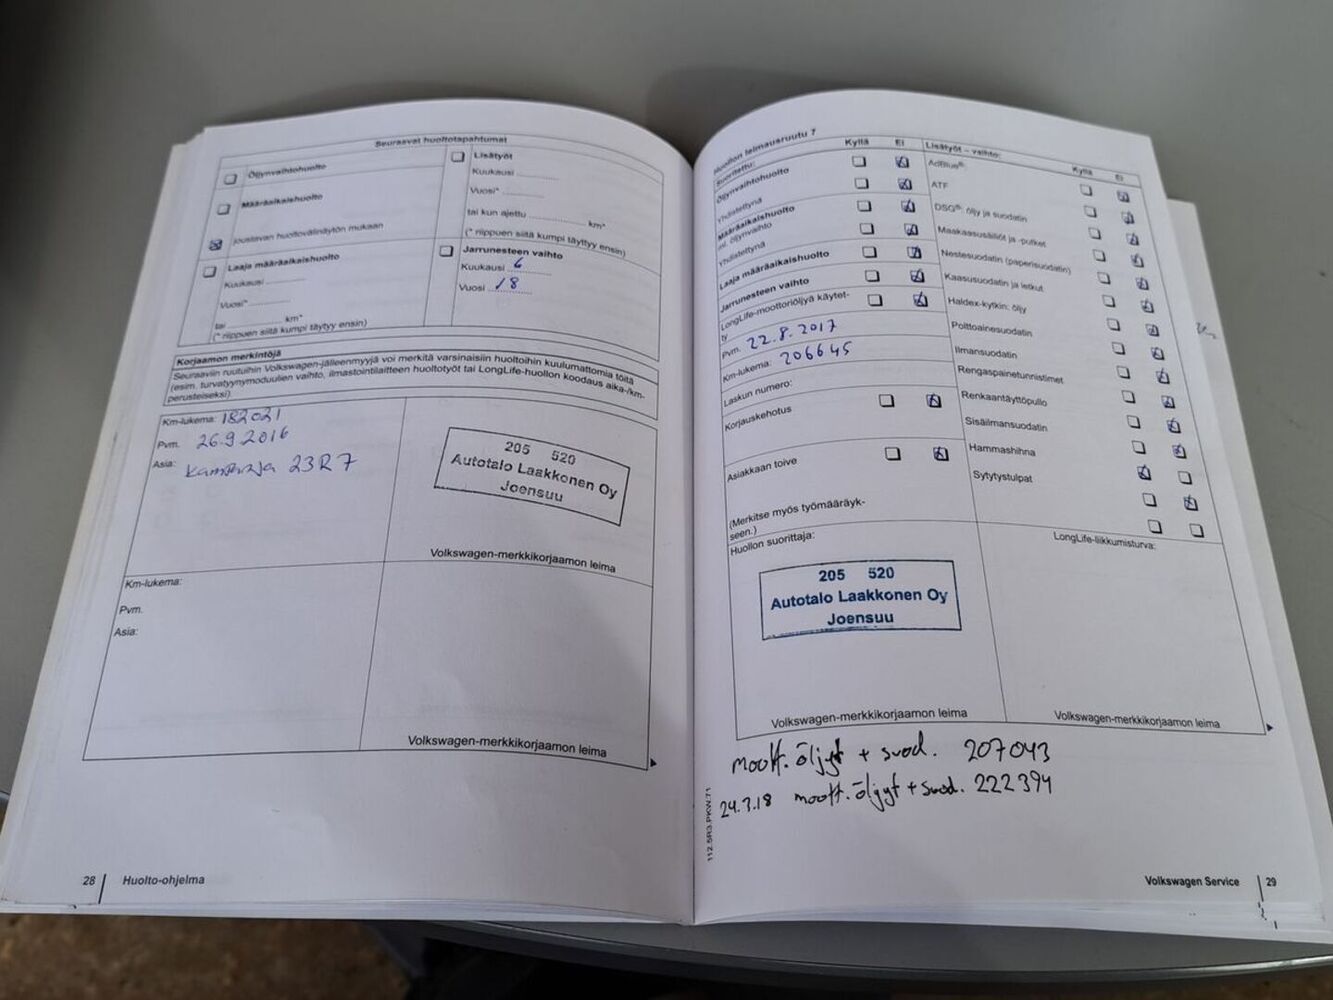 Seuraavat huoltotapahtumat
Öljynvaihtohuolto
Määräaikaishuolto
joustavan huoltovälinäytön mukaan
Laaja määräaikaishuolto
Kuukausi
Vuosi*
tai km*
(* riippuen siitä kumpi täytyy ensin)
Lisätyöt
Kuukausi
Vuosi*
tai kun ajettu km*
(* riippuen siitä kumpi täyttyy ensin)
Jarrunesteen vaihto
Kuukausi 6
Vuosi 18
Korjaamon merkintöjä
Seuraaviin ruutuihin Volkswagen-jälleenmyyjä voi merkitä varsinaisiin huoltoihin kuulumattomia töitä
(esim. turvatyynymoduulien vaihto, ilmastointilaitteen huoltotyöt tai LongLife-huollon koodaus aika-/km-
perusteiseksi).
Km-lukema: 182021
Pvm. 26.9.2016
Asia: 23R7
205 520
Autotalo Laakkonen Oy
Joensuu
Volkswagen-merkkikorjaamon leima
Km-lukema:
Pvm.
Asia:
Volkswagen-merkkikorjaamon leima
28 Huolto-ohjelma
Huollon leimausruutu 7
Suoritettu: Kyllä Ei
Öljynvaihtohuolto
Yhdistettynä
Määräaikaishuolto
ml. öljynvaihto
Yhdistettynä
Laaja määräaikaishuolto
Jarrunesteen vaihto
LongLife-moottoriöljyä käytet-
ty
Pvm. 22.8.2017
Km-lukema: 206645
Laskun numero:
Korjauskehotus
Asiakkaan toive
(Merkitse myös työmääräyk-
seen.)
Lisätyöt – vaihto: Kyllä Ei
AdBlue®
ATF
DSG®: öljy ja suodatin
Maakaasusäiliöt ja -putket
Nestesuodatin (paperisuodatin)
Kaasusuodatin ja letkut
Haldex-kytkin: öljy
Polttoainesuodatin
Ilmansuodatin
Rengaspainetunnistimet
Renkaantäyttöpullo
Sisäilmansuodatin
Hammashihna
Sytytystulpat
Huollon suorittaja:
205 520
Autotalo Laakkonen Oy
Joensuu
Volkswagen-merkkikorjaamon leima
LongLife-liikkumisturva:
Volkswagen-merkkikorjaamon leima
moott. öljyt + suod. 207043
24.3.18 moott. öljyt + suod. 222394
112.5R3.PKW.71
Volkswagen Service 29